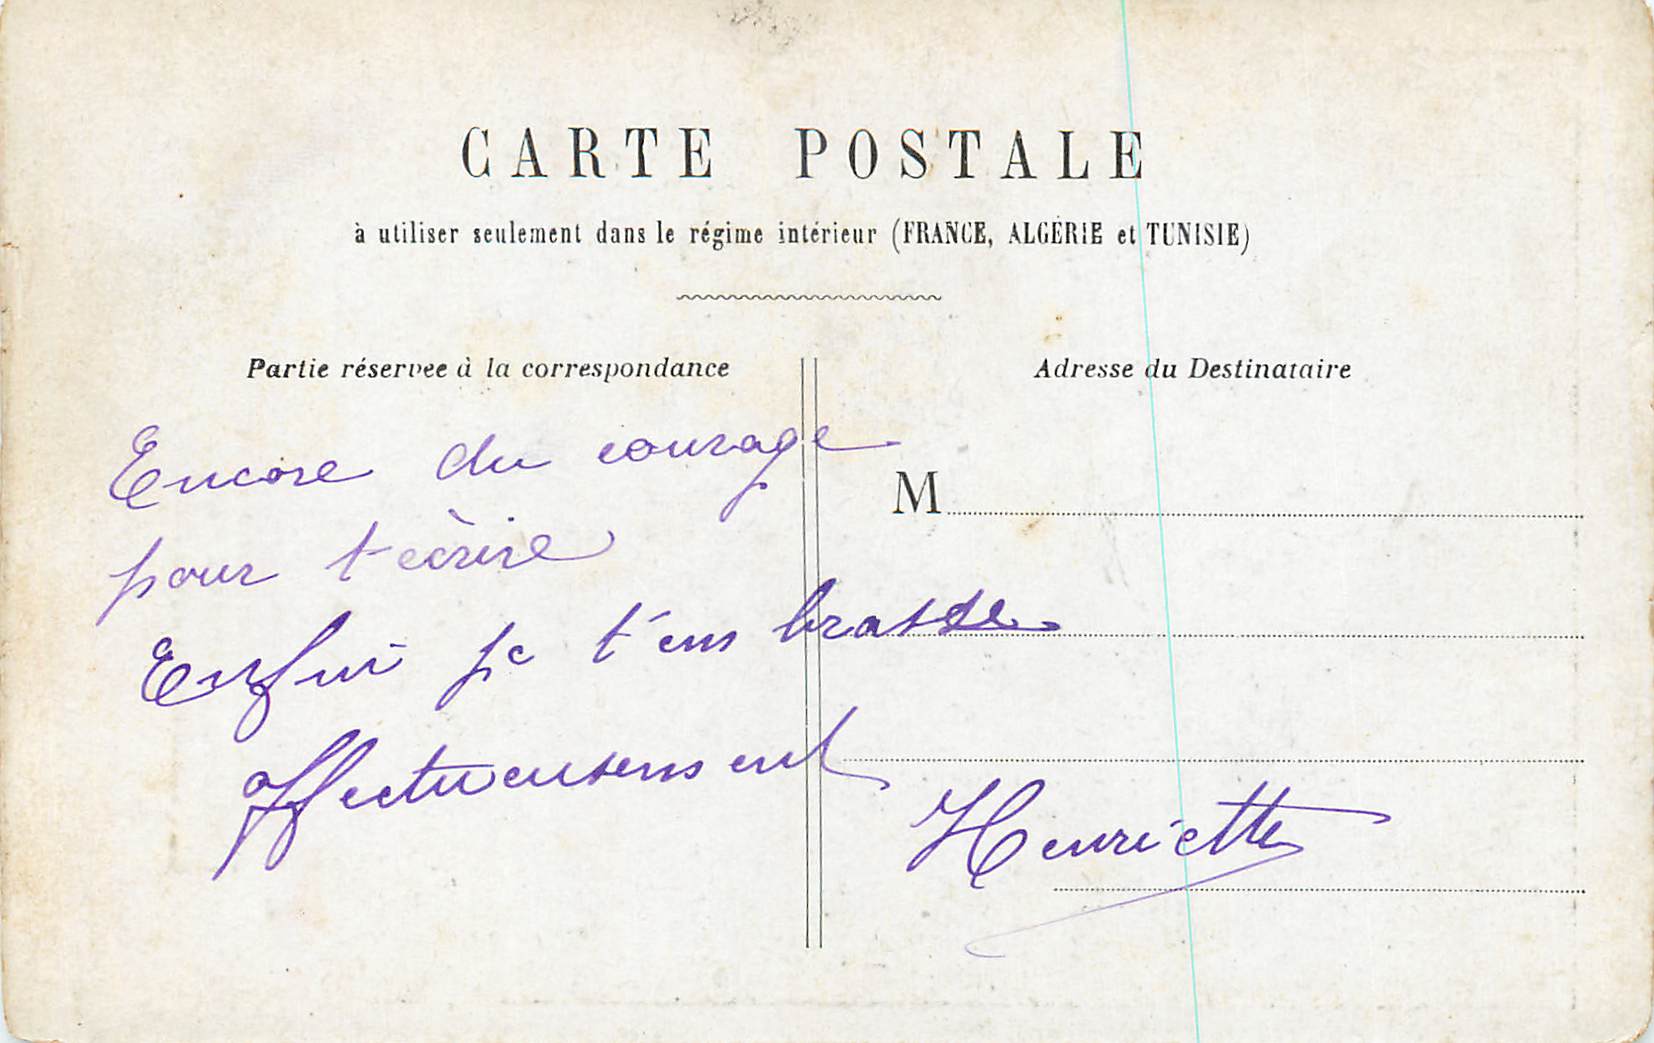 CARTE POSTALE
à utiliser seulement dans le régime intérieur (FRANCE, ALGÉRIE et TUNISIE)
Partie réservee à la correspondance
Adresse du Destinataire
Encore du courage
pour t écrire
Enfin je t'em brasse
affectueusement
M
Henriette